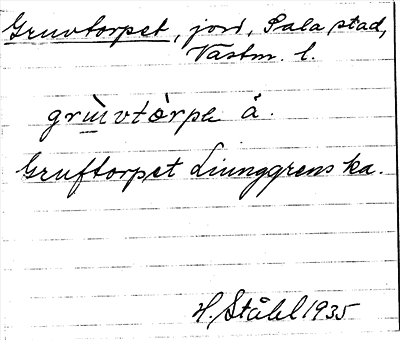 Gruvtorpet, jord, Sala stad,
Västm. l.
grùvtòrpe å.
Gruftorpet Ljunggrens ka.
H. Ståhl 1935